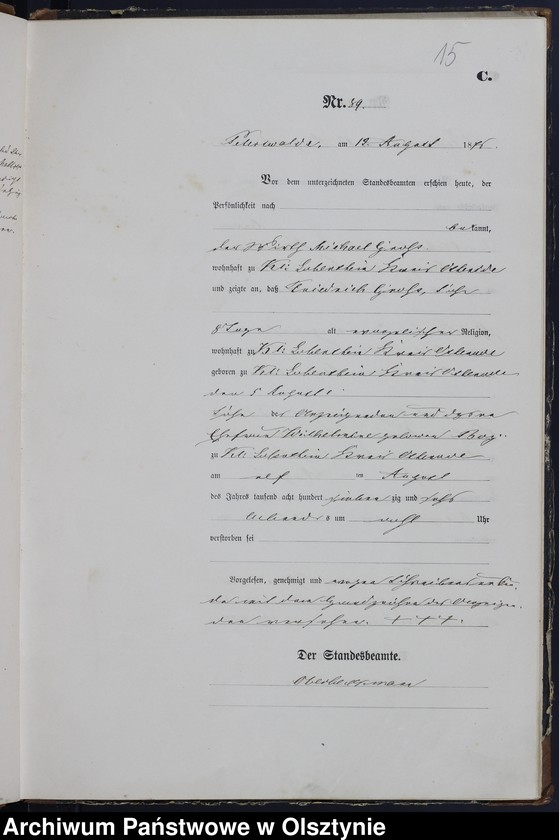 15
C.
Nr. 39.
am 12 August 1876.
Vor dem unterzeichneten Standesbeamten erschien heute, der
Persönlichkeit nach
bekannt,
der Wirth Michael
wohnhaft zu Kreis Osterode
und zeigte an, daß Friedrich
8 Tage alt evangelischer Religion,
wohnhaft zu Kreis Osterode
geboren zu Kreis Osterode
den 5 August
Sohn des Anzeigenden und dessen
Ehefrau Wilhelmine geborene
zu Kreis Osterode
am elf im August
des Jahres tausend acht hundert sieben zig und sechs
Abends um acht Uhr
verstorben sei
Vorgelesen, genehmigt und wegen Schreibensunkun-
de mit dem Handzeichen des Anzeigen-
den versehen. + + +.
Der Standesbeamte.
Archiwum Państwowe w Olsztynie